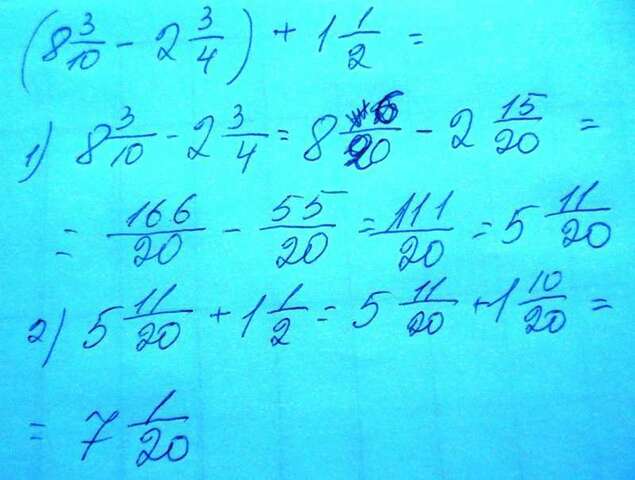 (8 3/10 - 2 3/4) + 1 1/2 =
1) 8 3/10 - 2 3/4 = 8 6/20 - 2 15/20 =
= 166/20 - 55/20 = 111/20 = 5 11/20
2) 5 11/20 + 1 1/2 = 5 11/20 + 1 10/20 =
= 7 1/20